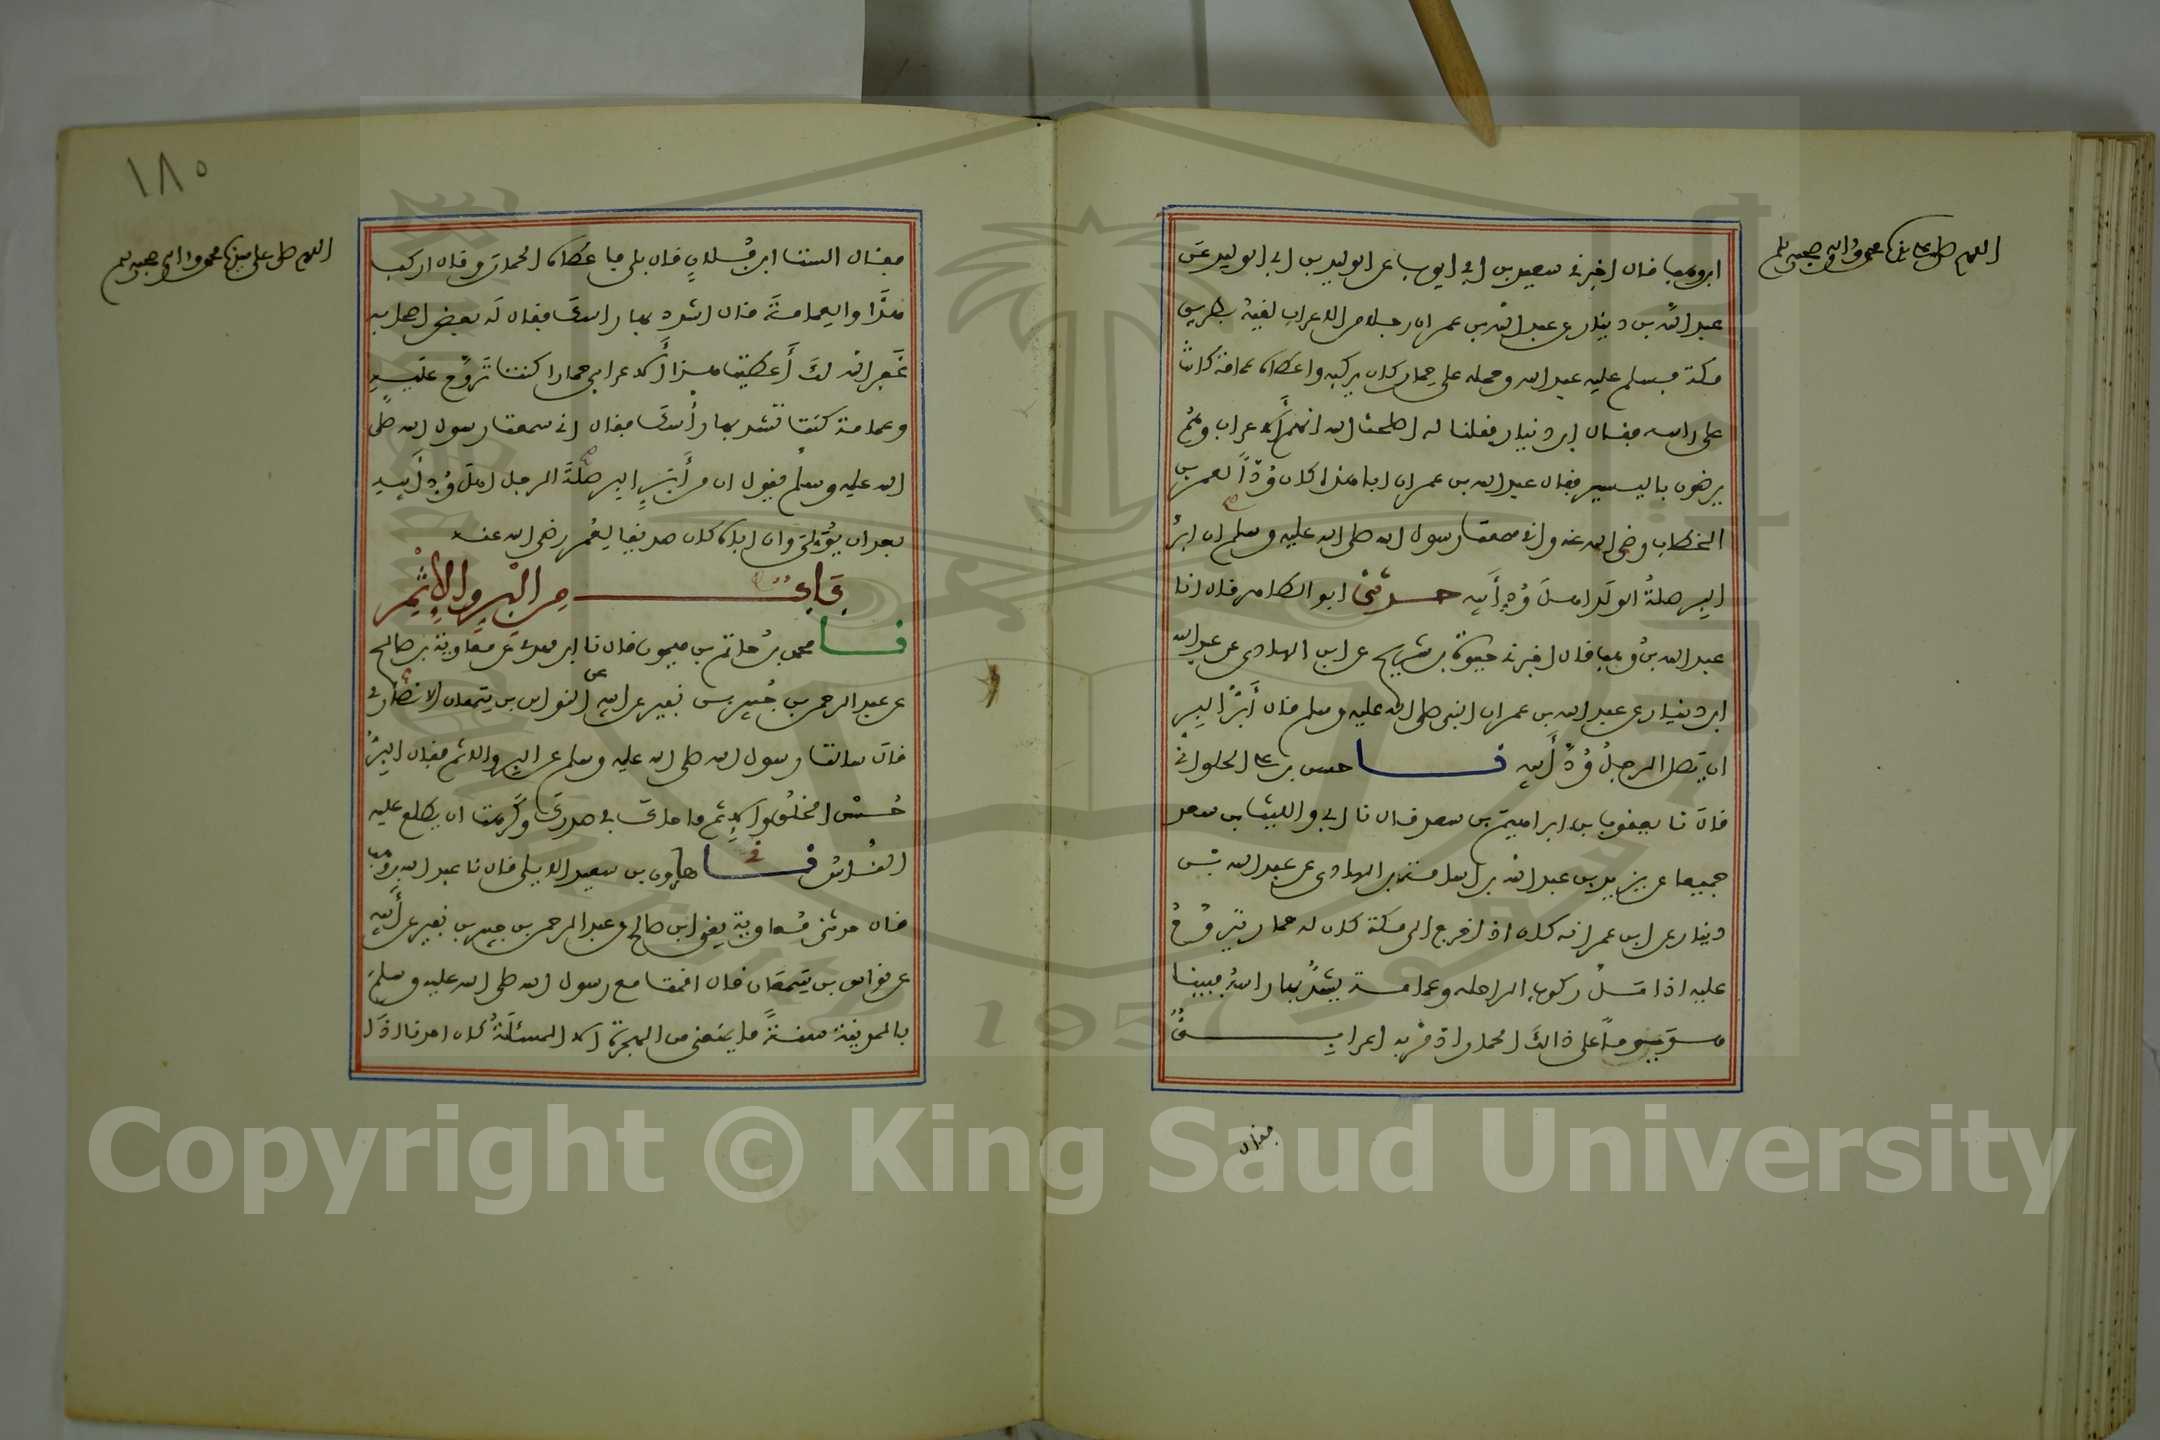 اللهم صل على سيدنا محمد وآله وصحبه وسلم
ابن وهب قال اخبرني سعيد بن ابي ايوب عن الوليد بن ابي الوليد عن
عبد الله بن دينار عن عبد الله بن عمر ان رجلا من الاعراب لقيه بطريق
مكة فسلم عليه عبد الله وحمله على حمار كان يركبه واعطاه عمامة كانت
على راسه فقال ابن دينار فقلنا له اصلحك الله انهم الاعراب وهم
يرضون باليسير فقال عبد الله بن عمر ان ابا هذا كان ودا لعمر بن
الخطاب رضي الله عنه واني سمعت رسول الله صلى الله عليه وسلم ان ابر
البر صلة الولد اهل ود أبيه حدثني ابو الطاهر قال انا
عبد الله بن وهب قال اخبرني حيوة بن شريح عن ابن الهادي عن عبد الله
ابن دينار عن عبد الله بن عمر ان النبي صلى الله عليه وسلم قال أبر البر
ان يصل الرجل ود أبيه نا حسن بن علي الحلواني
قال نا يعقوب بن ابراهيم بن سعد قال نا ابي والليث بن سعد
جميعا عن يزيد بن عبد الله بن اسامة بن الهادي عن عبد الله بن
دينار عن ابن عمر انه كان اذا خرج الى مكة كان له حمار يتروح
عليه اذا مل ركوب الراحله وعمامة يشد بها راسه فبينا
هو يوما على ذالك الحمار اذ مر به اعرابي
فقال
١٨٥
اللهم صل على سيدنا محمد وآله وصحبه وسلم
فقال الست ابن فلان قال بلى فاعطاه الحمار وقال اركب
هذا والعمامة قال اشدد بها راسك فقال له بعض اصحابه
غفر الله لك أعطيت هذا الاعرابي حمارا كنت تروح عليه
وعمامة كنت تشد بها رأسك فقال اني سمعت رسول الله صلى
الله عليه وسلم يقول ان من أبر البر صلة الرجل اهل ود أبيه
بعد ان يولي وان اباه كان صديقا لعمر رضي الله عنه
باب من البر والإثم
نا محمد بن حاتم بن ميمون قال نا ابن مهدي عن معاوية بن صالح
عن عبد الرحمن بن جبير بن نفير عن ابيه عن النواس بن سمعان الانصاري
قال سالت رسول الله صلى الله عليه وسلم عن البر والاثم فقال البر
حسن الخلق والاثم ما حاك في صدرك وكرهت ان يطلع عليه
الناس نا هارون بن سعيد الايلي قال نا عبد الله بن وهب
قال حدثني معاوية يعني ابن صالح عن عبد الرحمن بن جبير بن نفير عن أبيه
عن نواس بن سمعان قال اقمت مع رسول الله صلى الله عليه وسلم
بالمدينة سنة ما يمنعني من الهجرة الا المسئلة كان احدنا اذا